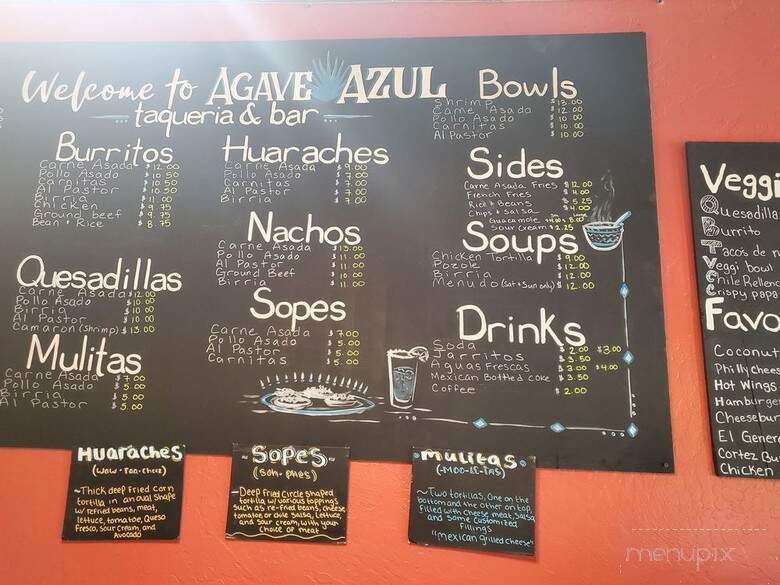 Welcome to AGAVE AZUL
taqueria & bar
Burritos
Carne Asada $12.00
Pollo Asado $10.50
Carnitas $10.50
Al Pastor $10.50
Birria $11.00
Chicken $9.75
Ground beef $9.75
Bean + Rice $8.75
Quesadillas
Carne Asada $12.00
Pollo Asado $10.00
Birria $10.00
Al Pastor $10.00
Camaron (Shrimp) $13.00
Mulitas
Carne Asada $7.00
Pollo Asado $5.00
Birria $5.00
Al Pastor $5.00
Huaraches
Carne Asada $9.00
Pollo Asado $7.00
Carnitas $7.00
Al Pastor $7.00
Birria $7.00
Nachos
Carne Asada $13.00
Pollo Asado $11.00
Al Pastor $11.00
Ground Beef $10.00
Birria $11.00
Sopes
Carne Asada $7.00
Pollo Asado $5.00
Al Pastor $5.00
Carnitas $5.00
Bowls
Shrimp $13.00
Carne Asada $12.00
Pollo Asado $10.00
Carnitas $10.00
Al Pastor $10.00
Sides
Carne Asada Fries $12.00
French Fries $4.00
Rice + Beans $5.25
Chips + Salsa $4.00
Guacamole
Sour cream $2.25
Soups
Chicken Tortilla $9.00
Pozole $12.00
Birria $12.00
Menudo (Sat + Sun only) $12.00
Drinks
Soda $2.00 $3.00
Jarritos $3.50
Aguas Frescas $3.00 $4.00
Mexican Bottled Coke $3.50
Coffee $2.00
Veggi
Quesadilla
Burrito
Tacos de n
Veggi bowl
Chile Rellen
Crispy papa
Favo
Coconut
Philly chees
Hot Wings
Hamburger
Cheesebur
El Gener
Cortez Bu
Chicken
Huaraches
(Waw-Raa-cheez)
~Thick deep fried corn
tortilla in an oval shape
w/ refried beans, meat,
lettuce, tomatoe, Queso
Fresco, sour cream, and
Avocado
~Sopes~
(Soh-phes)
~Deep fried circle shaped
tortilla w/ various toppings
such as re-fried beans, cheese,
tomatoe or chile salsa, lettuce,
and sour cream, with your
choice of meat
Mulitas
(-MOO-LE-TAS)
~Two tortillas, one on the
bottom and the other on top,
filled with cheese meat, salsa
and some customized
fillings
"mexican grilled cheese"
menupix